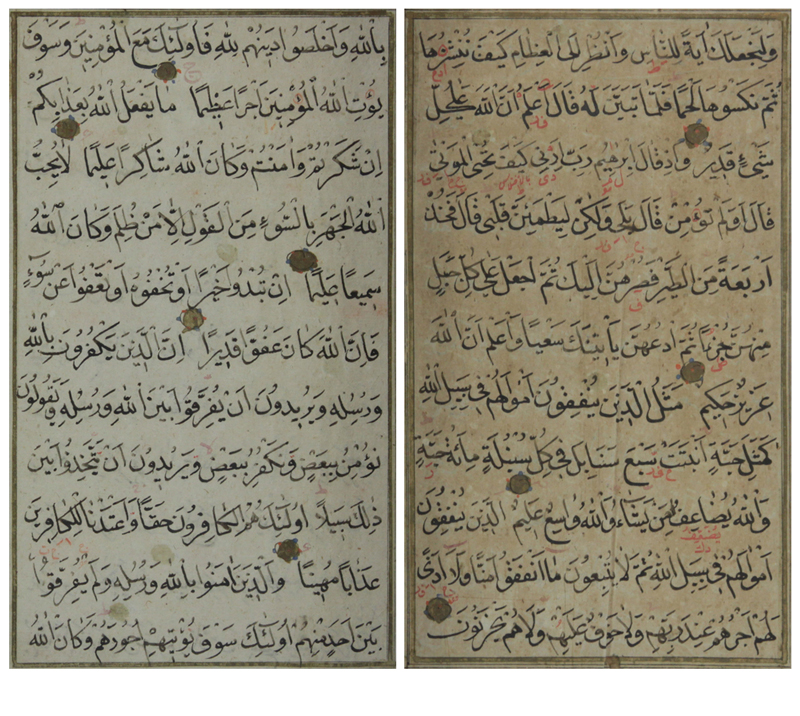 وَلِنَجْعَلَكَ اٰيَةً لِلنَّاسِ وَانْظُرْ اِلَى الْعِظَامِ كَيْفَ نُنْشِرُهَا
ثُمَّ نَكْسُوهَا لَحْمًا فَلَمَّا تَبَيَّنَ لَهُ قَالَ اَعْلَمُ اَنَّ اللّٰهَ عَلٰى كُلِّ
شَيْءٍ قَدِيرٌ وَاِذْ قَالَ اِبْرٰهِيمُ رَبِّ اَرِنِي كَيْفَ تُحْيِي الْمَوْتٰى
قَالَ اَوَلَمْ تُؤْمِنْ قَالَ بَلٰى وَلٰكِنْ لِيَطْمَئِنَّ قَلْبِي قَالَ فَخُذْ
اَرْبَعَةً مِنَ الطَّيْرِ فَصُرْهُنَّ اِلَيْكَ ثُمَّ اجْعَلْ عَلٰى كُلِّ جَبَلٍ
مِنْهُنَّ جُزْءًا ثُمَّ ادْعُهُنَّ يَأْتِينَكَ سَعْيًا وَاعْلَمْ اَنَّ اللّٰهَ
عَزِيزٌ حَكِيمٌ مَثَلُ الَّذِينَ يُنْفِقُونَ اَمْوَالَهُمْ فِي سَبِيلِ اللّٰهِ
كَمَثَلِ حَبَّةٍ اَنْبَتَتْ سَبْعَ سَنَابِلَ فِي كُلِّ سُنْبُلَةٍ مِائَةُ حَبَّةٍ
وَاللّٰهُ يُضَاعِفُ لِمَنْ يَشَاءُ وَاللّٰهُ وَاسِعٌ عَلِيمٌ الَّذِينَ يُنْفِقُونَ
اَمْوَالَهُمْ فِي سَبِيلِ اللّٰهِ ثُمَّ لَا يُتْبِعُونَ مَا اَنْفَقُوا مَنًّا وَلَا اَذًى
لَهُمْ اَجْرُهُمْ عِنْدَ رَبِّهِمْ وَلَا خَوْفٌ عَلَيْهِمْ وَلَا هُمْ يَحْزَنُونَ
بِاللّٰهِ وَاَخْلَصُوا دِينَهُمْ لِلّٰهِ فَاُولٰئِكَ مَعَ الْمُؤْمِنِينَ وَسَوْفَ
يُؤْتِ اللّٰهُ الْمُؤْمِنِينَ اَجْرًا عَظِيمًا مَا يَفْعَلُ اللّٰهُ بِعَذَابِكُمْ
اِنْ شَكَرْتُمْ وَاٰمَنْتُمْ وَكَانَ اللّٰهُ شَاكِرًا عَلِيمًا لَا يُحِبُّ
اللّٰهُ الْجَهْرَ بِالسُّوءِ مِنَ الْقَوْلِ اِلَّا مَنْ ظُلِمَ وَكَانَ اللّٰهُ
سَمِيعًا عَلِيمًا اِنْ تُبْدُوا خَيْرًا اَوْ تُخْفُوهُ اَوْ تَعْفُوا عَنْ سُوءٍ
فَاِنَّ اللّٰهَ كَانَ عَفُوًّا قَدِيرًا اِنَّ الَّذِينَ يَكْفُرُونَ بِاللّٰهِ
وَرُسُلِهِ وَيُرِيدُونَ اَنْ يُفَرِّقُوا بَيْنَ اللّٰهِ وَرُسُلِهِ وَيَقُولُونَ
نُؤْمِنُ بِبَعْضٍ وَنَكْفُرُ بِبَعْضٍ وَيُرِيدُونَ اَنْ يَتَّخِذُوا بَيْنَ
ذٰلِكَ سَبِيلًا اُولٰئِكَ هُمُ الْكَافِرُونَ حَقًّا وَاَعْتَدْنَا لِلْكَافِرِينَ
عَذَابًا مُهِينًا وَالَّذِينَ اٰمَنُوا بِاللّٰهِ وَرُسُلِهِ وَلَمْ يُفَرِّقُوا
بَيْنَ اَحَدٍ مِنْهُمْ اُولٰئِكَ سَوْفَ يُؤْتِيهِمْ اُجُورَهُمْ وَكَانَ اللّٰهُ